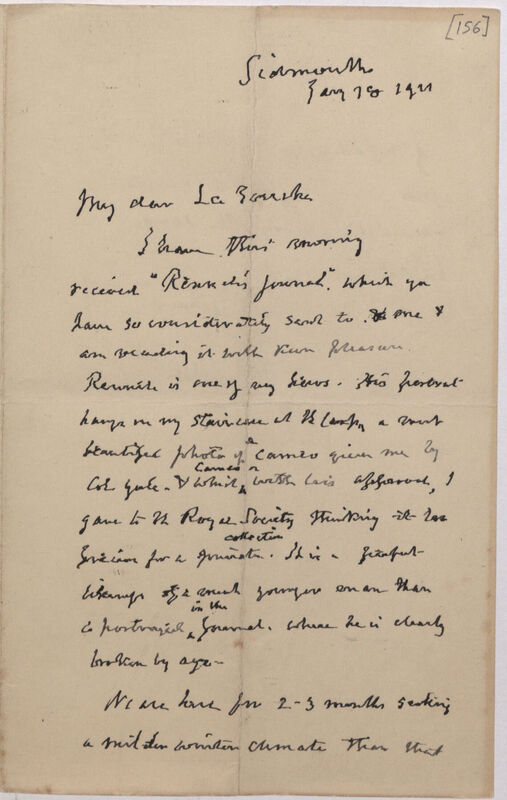 [156]
Sidmouth
Jany 18 1911
My dear La Touche
I have this morning
received "Rennell's Journal", which you
have so considerately sent to me &
am reading it with keen pleasure.
Rennell is one of my heros. His portrait
hangs on my staircase at the Camp, a most
beautiful photo of a cameo given me by
Col Yule - & which Cameo with his approval, I
gave to the Royal Society thinking it too
precious for a private collection. It is a
likeness of a much younger man than
is portrayed in the Journal. where he is clearly
broken by age -
We are here for 2-3 months seeking
a milder winter climate than that